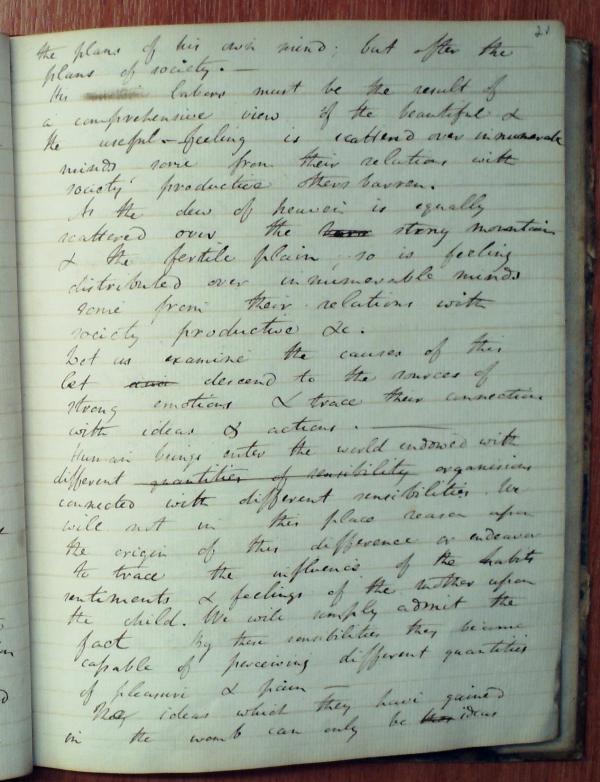 21
the plans of his own mind; but after the
plans of society. —
His labors must be the result of
a comprehensive view of the beautiful &
the useful – feeling is scattered over innumerable
minds some from their relations with
society productive others barren.
As the dew of heaven is equally
scattered over the stony mountain
& the fertile plain so is feeling
distributed over innumerable minds
some from their relations with
society productive &c.
Let us examine the causes of this
let descend to the sources of
strong emotions & trace their connection
with ideas & actions. —
Human beings enter the world endowed with
different quantities of sensibility organisions
connected with different sensibilities. We
will not in this place reason upon
the origin of this difference or endeavor
to trace the influence of the habits
sentiments & feelings of the mother upon
the child. We will simply admit the
fact By these sensibilities they become
capable of perceiving different quantities
of pleasure & pain —
ideas which they have gained
in the womb can only be ideas